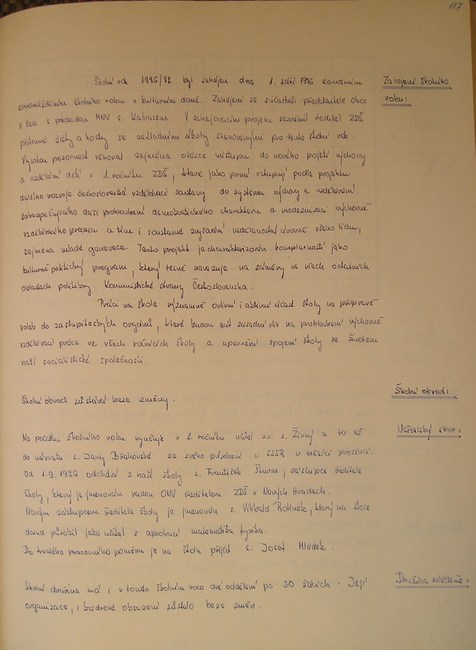 117
Školní rok 1976/77 byl zahájen dne 1. září 1976 slavnostním
Zahájení školního
roku:
shromážděním školního roku v kulturním domě. Zahájení se zúčastnili představitelé obce
v čele s předsedou MNV s. V zahajovacím projevu seznámil ředitel ZDŠ
přítomné žáky a hosty se základními úkoly stanovenými pro tento školní rok.
pozornost věnoval zejména otázce nástupu do nového pojetí výchovy
a vzdělání dětí v 1. ročníku ZDŠ, které jako první vstupují podle projektu
dalšího rozvoje československé vzdělávací soustavy do systému výchovy a vzdělávání
zabezpečujícího další prohloubení demokratického charakteru a modernizaci výchovně
vzdělávacího procesu a tím i soustavné zvyšování vzdělanostní úrovně všeho lidu,
zejména mladé generace. Tento projekt je charakterizován komplexností jako
kulturně politický program, který těsně navazuje na záměry ve všech ostatních
oblastech politiky Komunistické strany Československa.
Práci na škole významně ovlivní i aktivní účast školy na přípravě
voleb do zastupitelských orgánů, které budou mít závažný vliv na prohloubení výchovně
vzdělávací práce ve všech ročnících školy a upevnění spojení školy se životem
naší socialistické společnosti.
Školní obvod:
Školní obvod zůstává beze změny.
Učitelský sbor:
Na počátku školního roku vyučuje v 2. ročníku učitel v.v. s. Živný a to až
do návratu s. Jany z svého působení v SSSR v měsíci prosinci.
Od 1.9.1976 odchází z naší školy s. František zástupce ředitele
školy, který je jmenován radou ONV ředitelem ZDŠ v Nových Hradech.
Novým zástupcem ředitele školy je jmenován s. který na škole
doposud působil jako učitel s aprobací matematika fyzika.
Do trvalého pracovního poměru je na školu přijat s. Josef
Družina mládeže:
Školní družina má i v tomto školním roce dvě oddělení po 30 žácích. Její
organizace, i barevné obsazení zůstalo beze změn.